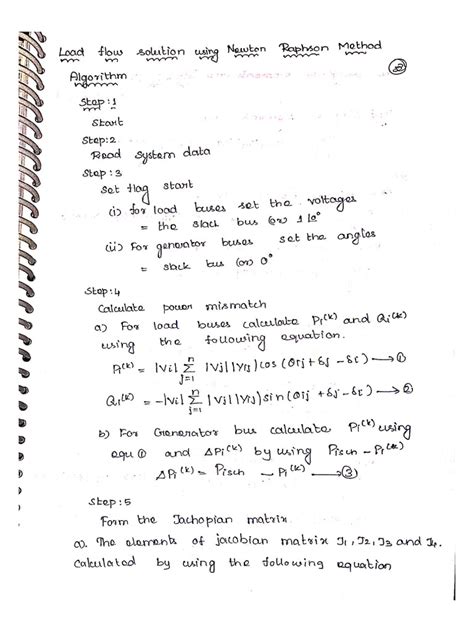 Load flow solution using Newton Raphson Method
Algorithm
Step:1
Start
Step:2
Read System data
Step:3
Set flag start
(i) for load buses set the voltages
= the slack bus (or) 1∠0°
(ii) For generator buses set the angles
= slack bus (or) 0°
Step:4
Calculate power mismatch
a) For load buses calculate Pi^(k) and Qi^(k)
using the following equation.
Pi^(k) = |Vi| n∑j=1 |Vj||Yij| cos (θij + δj - δi) → ①
Qi^(k) = -|Vi| n∑j=1 |Vj||Yij| sin (θij + δj - δi) → ②
b) For Generator bus calculate Pi^(k) using
equ ① and ΔPi^(k) by using Pisch - Pi^(k)
ΔPi^(k) = Pisch - Pi^(k) → ③
Step:5
Form the Jachopian matrix
a). The elements of jacobian matrix J1, J2, J3 and J4.
Calculated by using the following equation